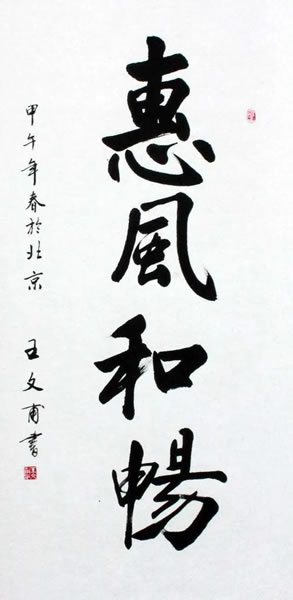 惠風和暢
甲午年春於北京 王文甫書